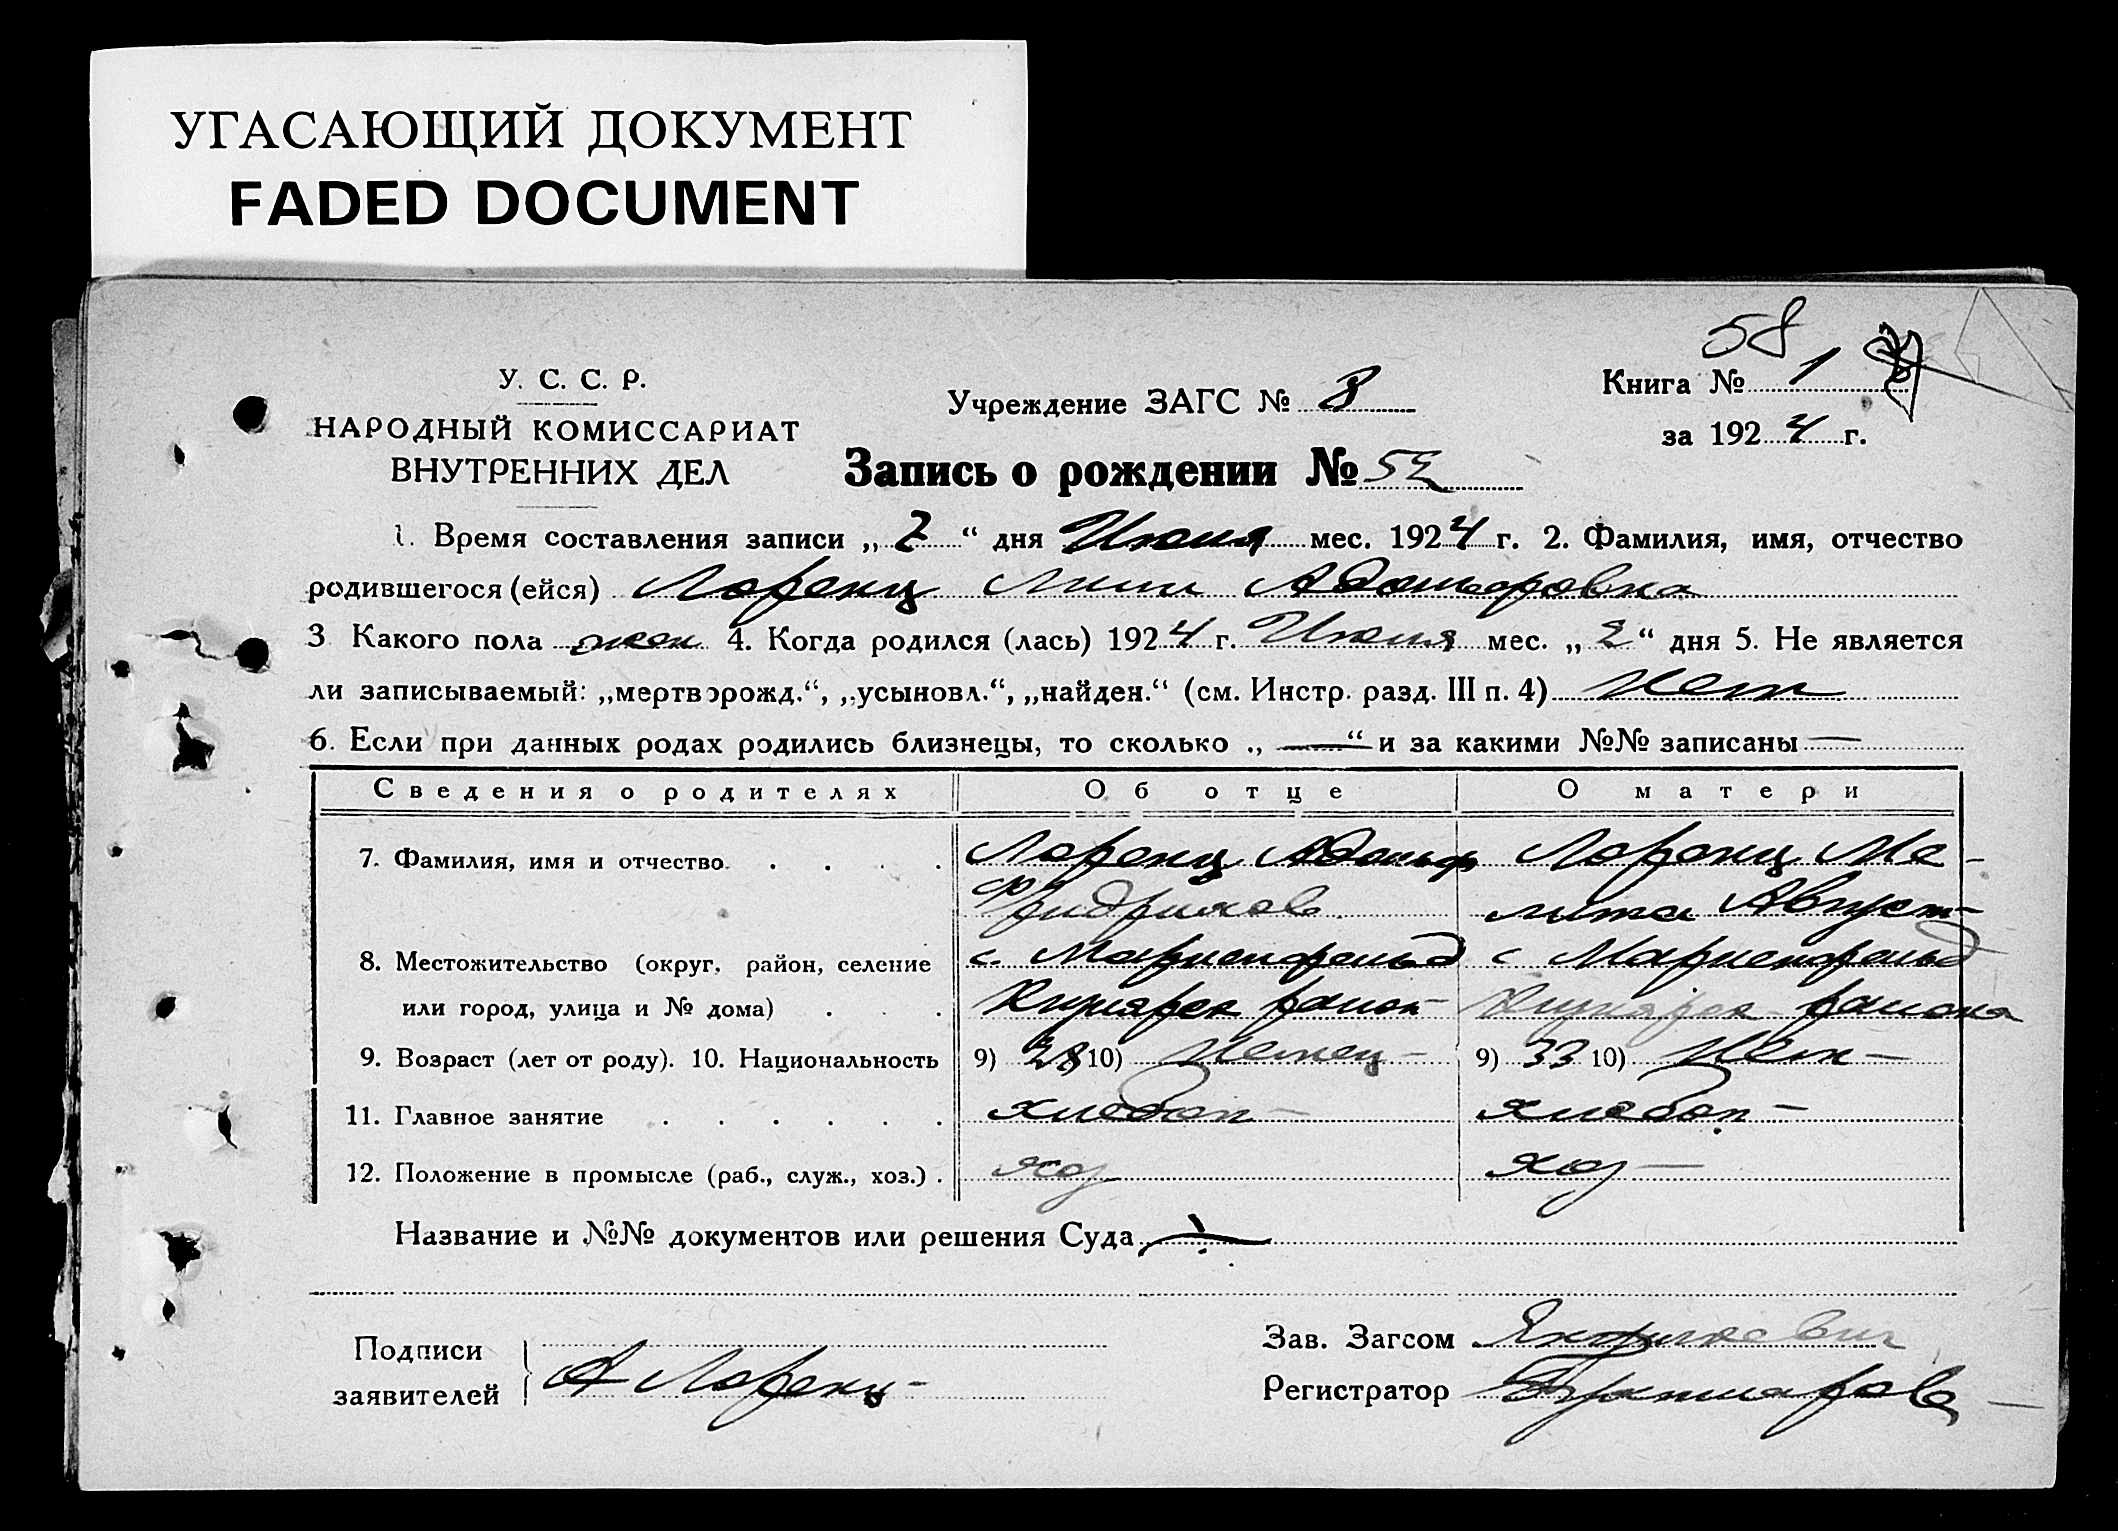 УГАСАЮЩИЙ ДОКУМЕНТ
FADED DOCUMENT
58
У. С. С. Р.
НАРОДНЫЙ КОМИССАРИАТ
ВНУТРЕННИХ ДЕЛ
Учреждение ЗАГС № 8
Книга № 1
за 1924 г.
Запись о рождении № 52
1. Время составления записи „2“ дня Июля мес. 1924 г. 2. Фамилия, имя, отчество
родившегося (ейся) Лоренц Лили Адольфовна
3 Какого пола жен 4. Когда родился (лась) 1924 г. Июля мес. „2“ дня 5. Не является
ли записываемый: „мертворожд.“, „усыновл.“, „найден.“ (см. Инстр. разд. III п. 4) Нет
6. Если при данных родах родились близнецы, то сколько „—“ и за какими №№ записаны —
Сведения о родителях Об отце О матери
7. Фамилия, имя и отчество Лоренц Адольф Лоренц Ме-
Фридрихов лита Август-
8. Местожительство (округ, район, селение с. Мариенфельд с Мариенфельд
или город, улица и № дома) район района
9. Возраст (лет от роду). 10. Национальность 9) 28 10) Немец- 9) 33 10) Нем-
11. Главное занятие хлебоп- хлебоп-
12. Положение в промысле (раб., служ., хоз.) хоз хоз-
Название и №№ документов или решения Суда
Подписи
заявителей А Лоренц
Зав. Загсом
Регистратор